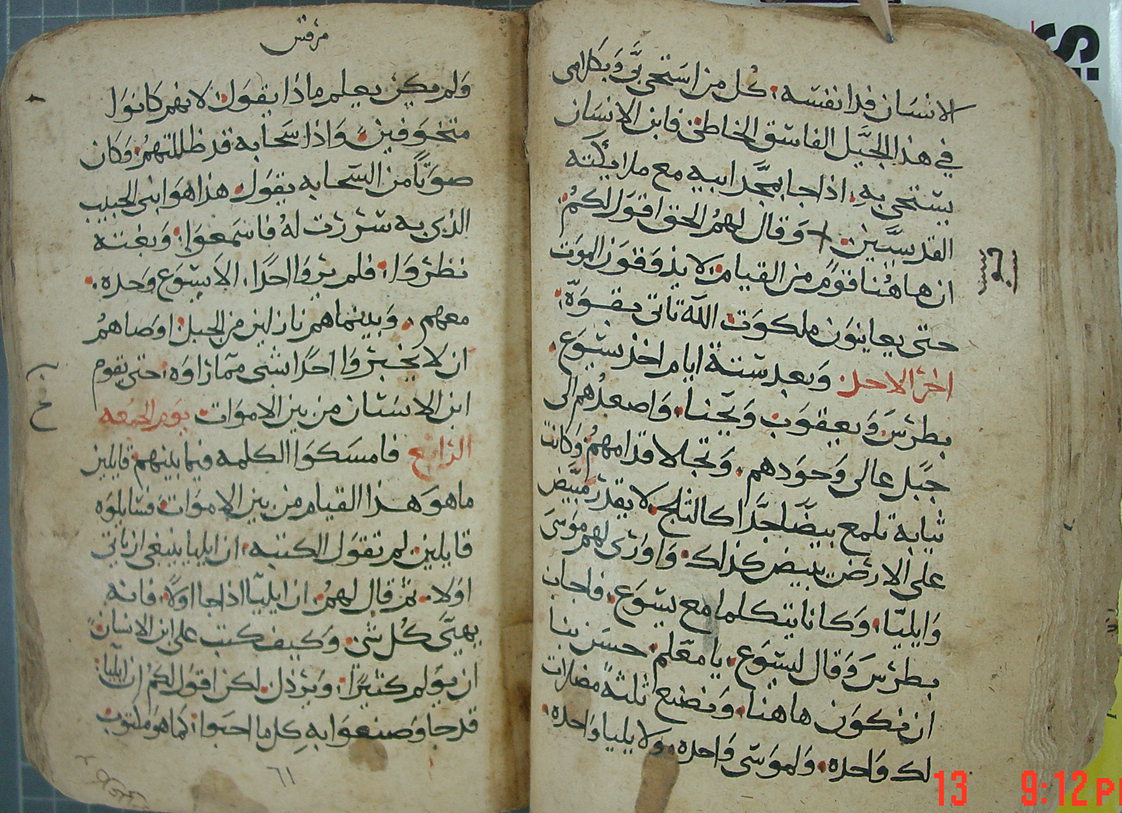 الانسان فدا نفسه؛ كل من استحى بى وبكلامى
في هذا الجيل الفاسق الخاطئ فابن الانسان
يستحى به؛ اذا جا بمجد ابيه مع ملايكته
القديسين؛ وقال لهم الحق اقول لكم؛
ان هاهنا قوم من القيام لا يذوقون الموت
حتى يعاينون ملكوت الله تاتى بقوه؛
اخر الاحد وبعد ستة ايام اخذ يسوع
بطرس ويعقوب ويحنا واصعدهم الى
جبل عالى وحودهم وتجلا قدامهم وكانت
ثيابه تلمع بيضا جدا كالثلج لا يقدر مبيض
على الارض يبيض كذلك واورى لهم موسى
وايليا وكانا يتكلما مع يسوع فاجاب
بطرس وقال ليسوع يا معلم حسن بنا
ان نكون هاهنا ونصنع ثلثه مضلات
لك واحده ولموسى واحده ولايليا واحده
مرقس
ولم يكن يعلم ماذا يقول لانهم كانوا
متخوفين واذا سحابه قد ظللتهم وكان
صوتا من السحابه يقول هذا هو ابنى الحبيب
الذى به سررت له فاسمعوا وبغته
نظروا فلم يروا احدا الا يسوع وحده
معهم وبينماهم نازلين من الجبل اوصاهم
ان لا يخبروا احدا بشى مما راوه حتى يقوم
ابن الانسان من بين الاموات يوم الجمعه
الرابع فامسكوا الكلمه فيما بينهم قايلين
ما هو هذا القيام من بين الاموات فسايلوه
قايلين لم تقول الكتبه ان ايليا ينبغى ان ياتى
اولا ثم قال لهم ان ايليا اذا جا اولا فانه
يهيى كل شى وكيف كتب على ابن الانسان
ان يولم كثيرا ويرذل لكن اقول لكم ان ايليا
قد جا وصنعوا به كل ما احبوا كما هو مكتوب
٦١
13 9:12 P